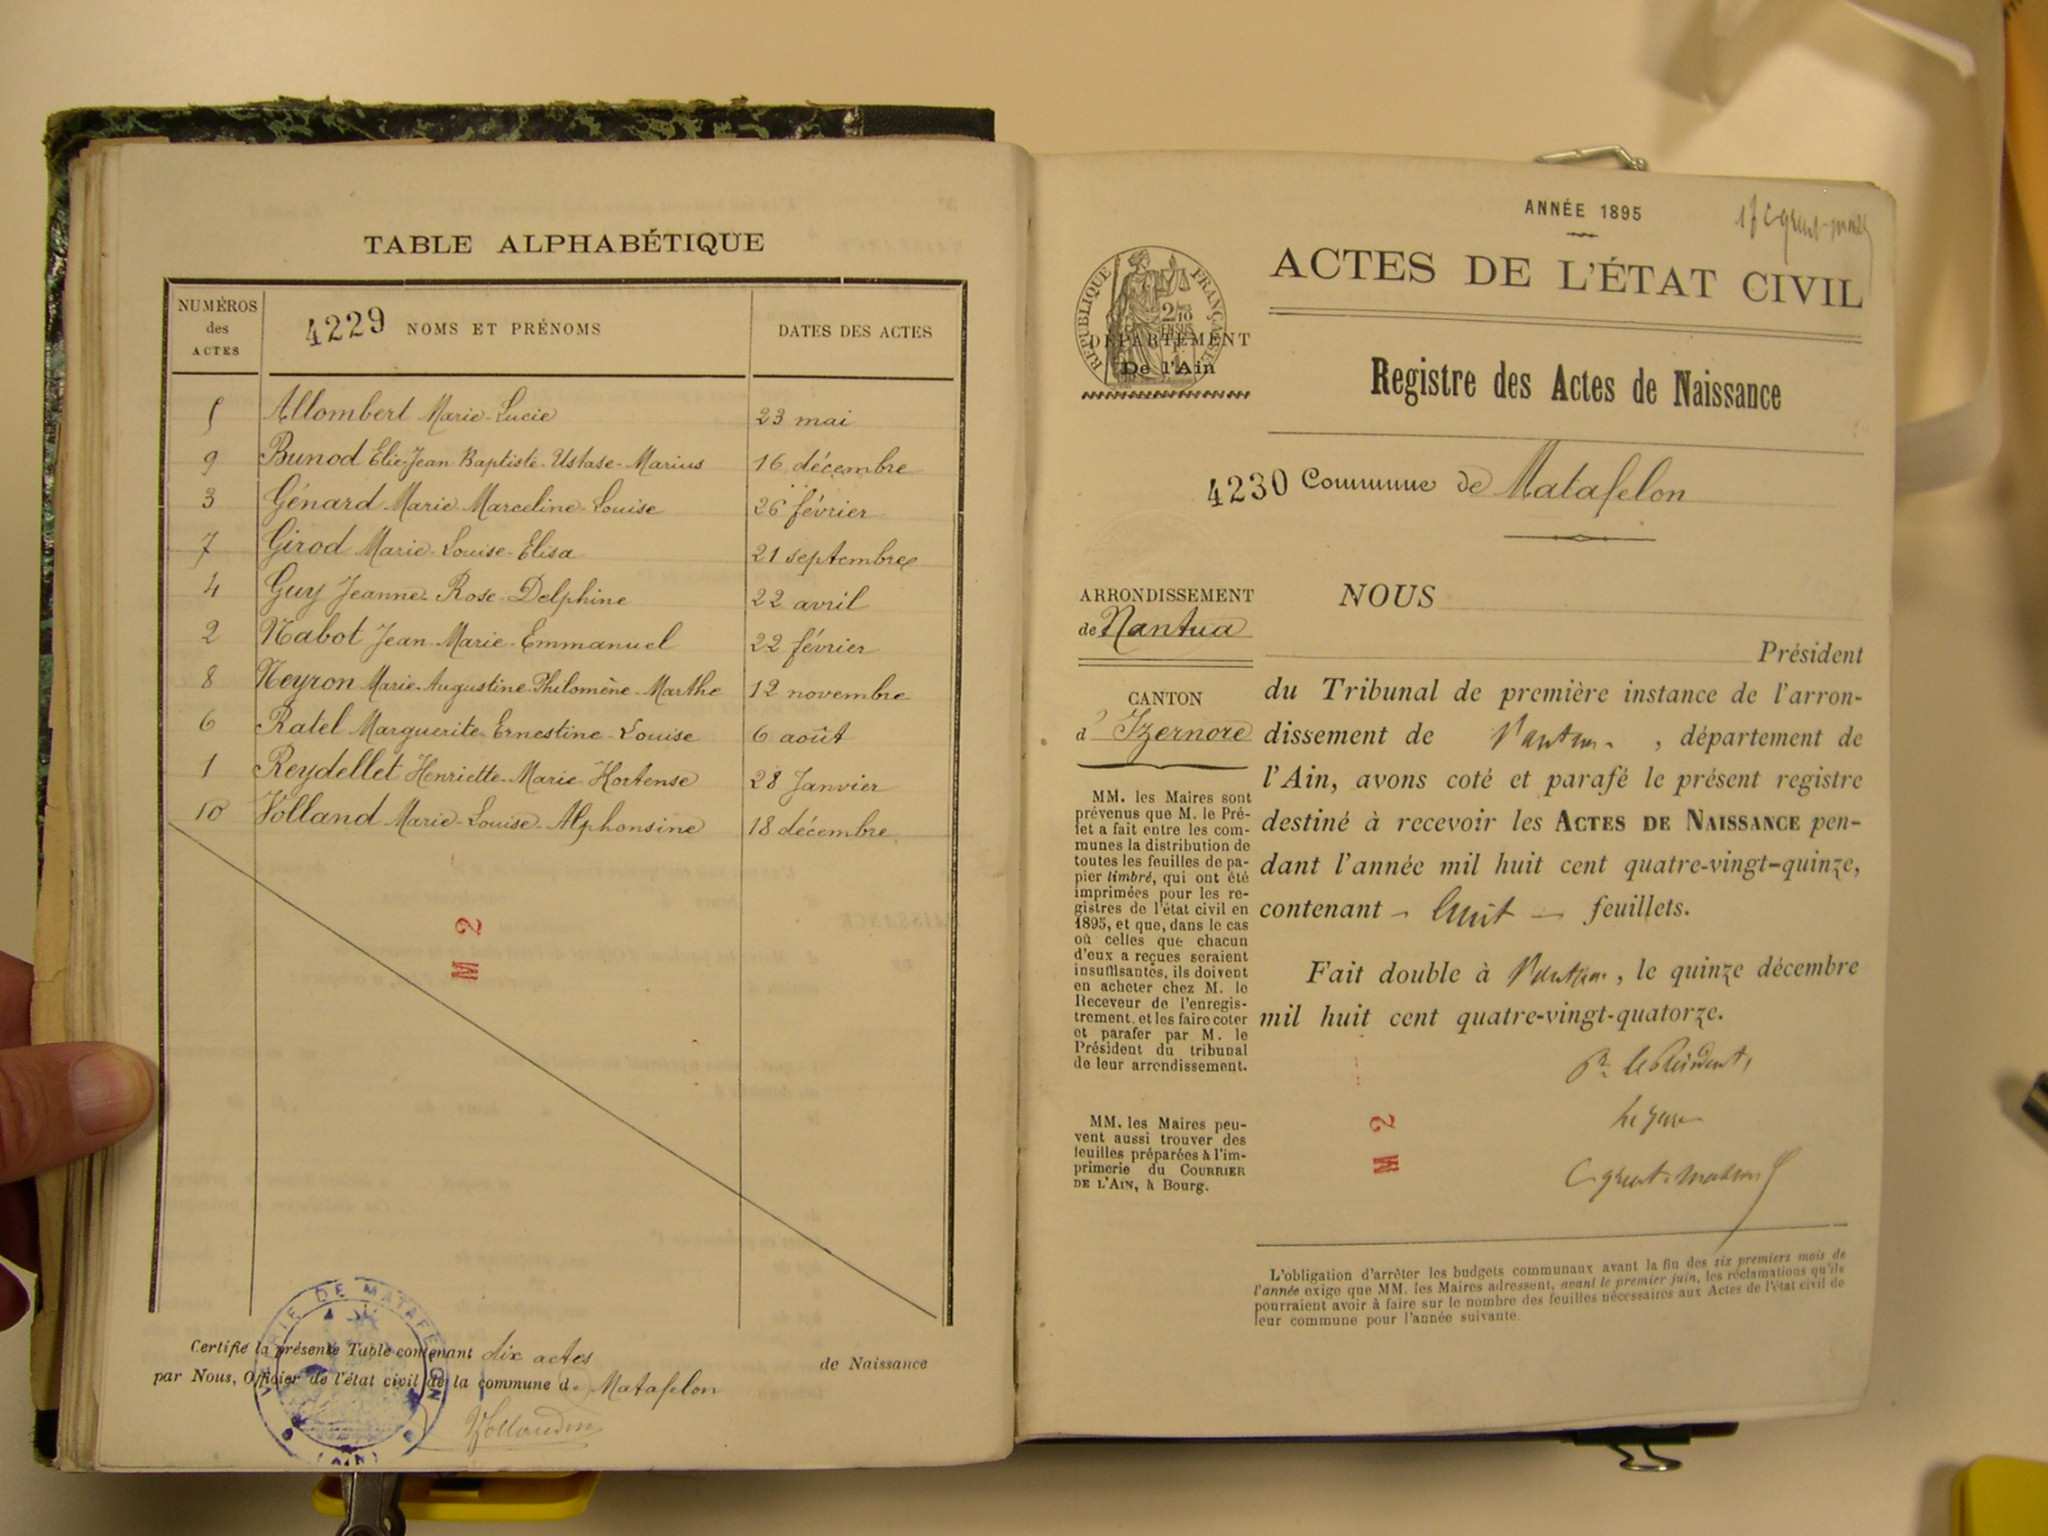 TABLE ALPHABÉTIQUE
NUMÉROS des ACTES
4229 NOMS ET PRÉNOMS
DATES DES ACTES
5 Allombert Marie-Lucie 23 mai
9 Bunod Elie-Jean Baptiste-Ustase-Marius 16 décembre
3 Génard Marie Marceline-Louise 26 février
7 Girod Marie-Louise-Elisa 21 septembre
4 Guy Jeanne-Rose-Delphine 22 avril
2 Nabot Jean-Marie-Emmanuel 22 février
8 Neyron Marie-Augustine-Philomène-Marthe 12 novembre
6 Ratel Marguerite-Ernestine-Louise 6 août
1 Reydellet Henriette-Marie-Hortense 28 Janvier
10 Volland Marie-Louise-Alphonsine 18 décembre
M 2
MAIRIE DE MATAFELON
(AIN)
Certifié la présente Table contenant dix actes de Naissance
par Nous, Officier de l'état civil de la commune d. Matafelon
ANNÉE 1895
RÉPUBLIQUE FRANÇAISE
ACTES DE L'ÉTAT CIVIL
DÉPARTEMENT
De l'Ain
Registre des Actes de Naissance
4230 Commune de Matafelon
ARRONDISSEMENT
de Nantua
CANTON
d' Izernore
MM. les Maires sont
prévenus que M. le Pré-
fet a fait entre les com-
munes la distribution de
toutes les feuilles de pa-
pier timbré, qui ont été
imprimées pour les re-
gistres de l'état civil en
1895, et que, dans le cas
où celles que chacun
d'eux a reçues seraient
insuffisantes, ils doivent
en acheter chez M. le
Receveur de l'enregis-
trement, et les faire coter
et parafer par M. le
Président du tribunal
de leur arrondissement.
MM. les Maires peu-
vent aussi trouver des
feuilles préparées à l'im-
primerie du COURRIER
DE L'AIN, à Bourg.
NOUS
Président
du Tribunal de première instance de l'arron-
dissement de Nantua, département de
l'Ain, avons coté et parafé le présent registre
destiné à recevoir les ACTES DE NAISSANCE pen-
dant l'année mil huit cent quatre-vingt-quinze,
contenant - huit - feuillets.
Fait double à Nantua, le quinze décembre
mil huit cent quatre-vingt-quatorze.
Pr. le Président,
le Juge
M 2
L'obligation d'arrêter les budgets communaux avant la fin des six premiers mois de
l'année exige que MM. les Maires adressent, avant le premier juin, les réclamations qu'ils
pourraient avoir à faire sur le nombre des feuilles nécessaires aux Actes de l'état civil de
leur commune pour l'année suivante.